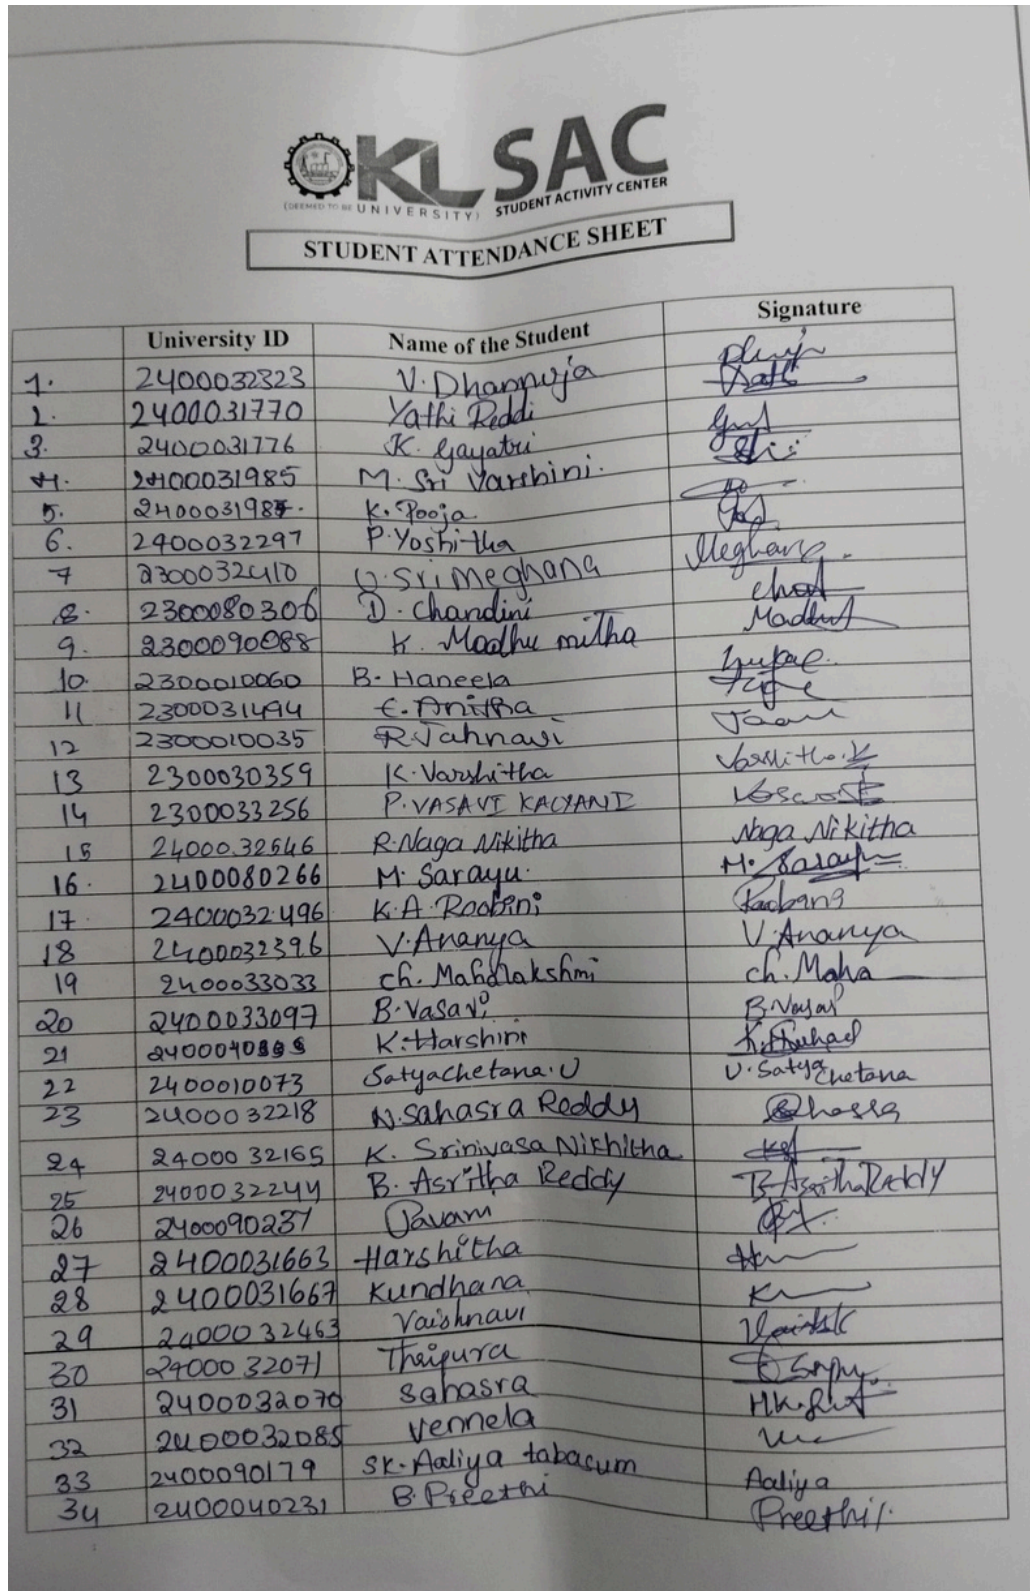 KL SAC
(DEEMED TO BE UNIVERSITY) STUDENT ACTIVITY CENTER
STUDENT ATTENDANCE SHEET
University ID Name of the Student Signature
1. 2400032323 V. Dhannuja
2. 2400031770 Yathi Reddi
3. 2400031776 K. Gayatri
4. 2400031985 M. Sri Varshini.
5. 240003198 K. Pooja
6. 2400032297 P. Yoshitha
7 2300032410 Sri Meghana Meghana
8. 2300080306 D. Chandini
9. 2300090088 K. Madhu mitha
10. 2300010060 B. Haneela
11 2300031494 E. Anitha
12 2300010035 R. Jahnavi
13 2300030359 K. Varshitha Varshitha.K
14 2300033256 P. VASAVI KALYANI
15 2400032646 R. Naga Nikitha Naga Nikitha
16. 2400080266 M. Sarayu. M. Sarayu
17 2400032496 K.A. Roobini
18 2400032396 V. Ananya V. Ananya
19 2400033033 ch. Mahalakshmi ch. Maha
20 2400033097 B. Vasavi B. Vasavi
21 K. Harshini
22 2400010073 Satyachetana. U U. Satya Chetana
23 2400032218 N. Sahasra Reddy
24 2400032165 K. Srinivasa Nikhitha
25 2400032244 B. Asritha Reddy B. Asritha Reddy
26 2400090237 Pavani
27 2400031663 Harshitha
28 2400031667 Kundhana
29 2400032463 Vaishnavi
30 2400032071 Thripura
31 2400032070 Sahasra
32 2400032085 Vennela
33 2400090179 SK. Aaliya tabasum Aaliya
34 2400040231 B. Preethi Preethi